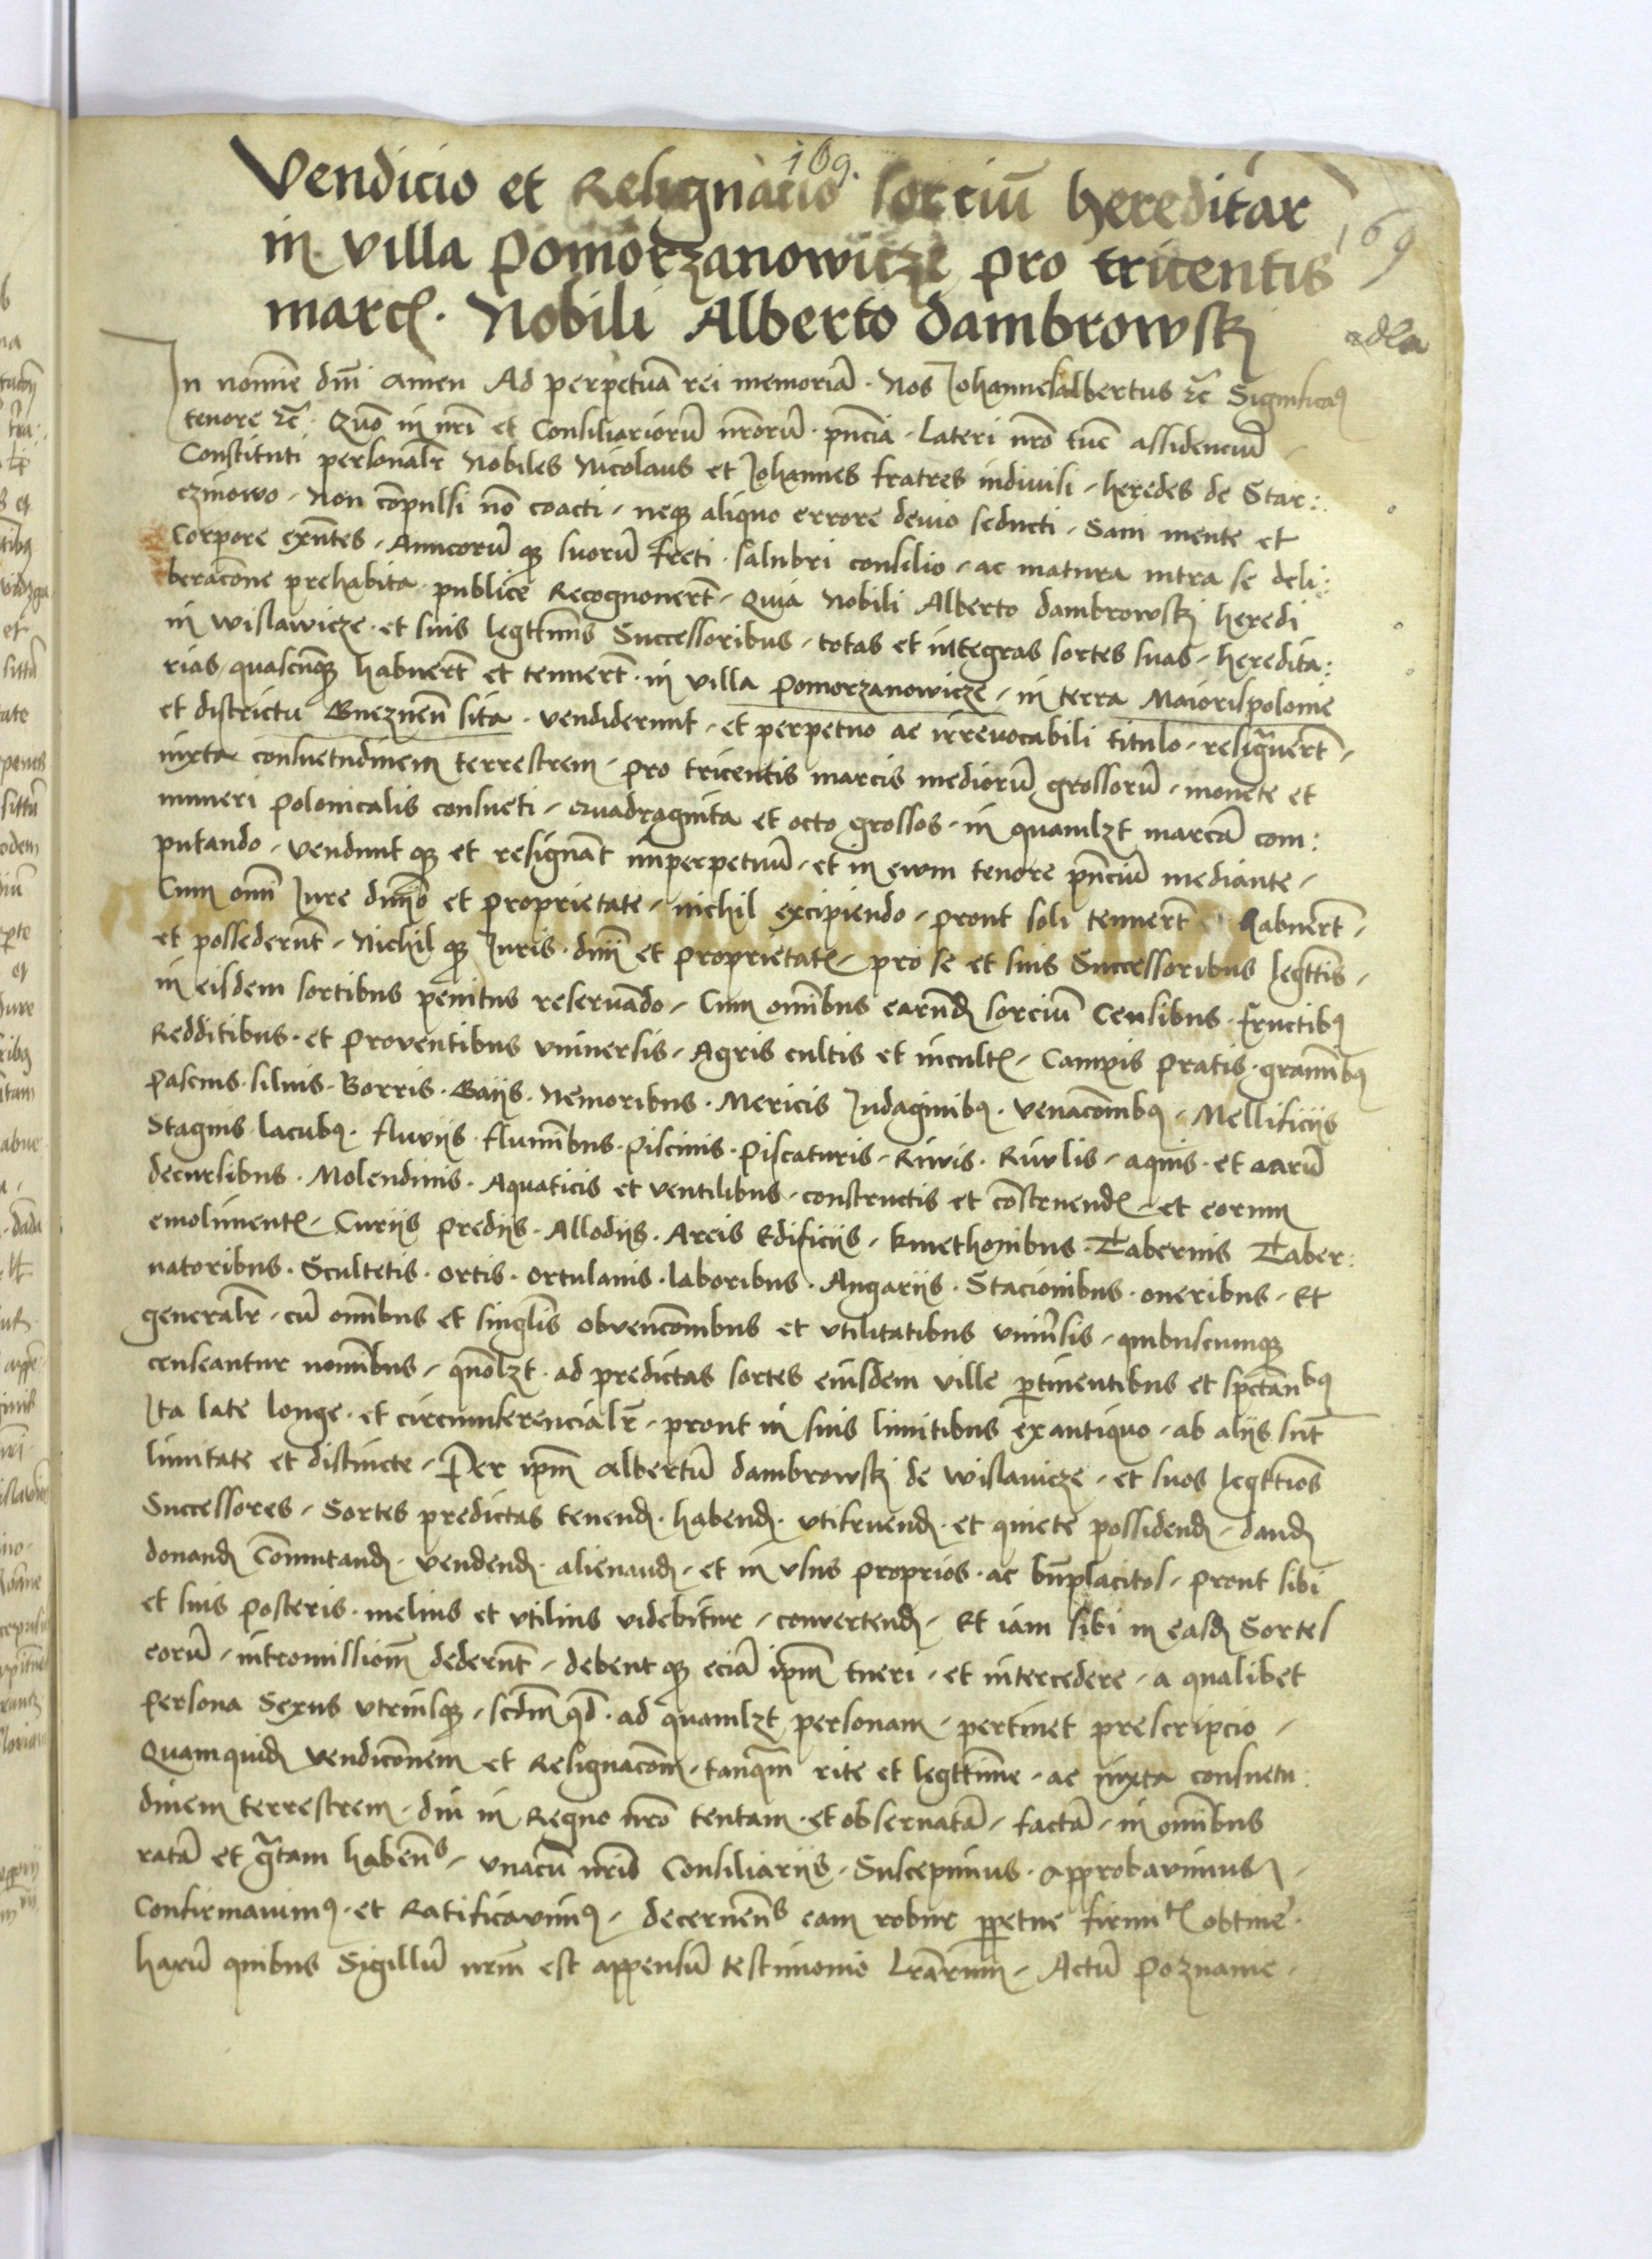 169.
Vendicio et Resignacio sorciū hereditar
in villa pomorzanowicze pro tricentis
marcꝭ. Nobili Alberto dambrowskj
169
In nomine dn̄i amen Ad perpetuā rei memoriā · Nos Johannesalbertus ⁊c̄ Significamꝰ
tenore ⁊c̄ · Quō in nr̄i et Consiliariorū nr̄orū · pn̄cia · Lateri nr̄o tūc assidenciū
Constituti personalr̄ Nobiles Nicolaus et Johannes fratres indiuisi · heredes de Star:
czinowo · Non cōpulsi nō coacti · neqꝫ aliquo errore deuio seducti · Sani mente et
Corpore exn̄tes · Amicorū qꝫ suorū freti · salubri consilio · ac matura intra se deli:
beracōne prehabita · publice Recognouerт̄ · Quia Nobili Alberto dambrowskj heredi
in wislawicze · et suis legttimis Successoribus · totas et integras sortes suas · heredita:
rias quascūqꝫ habuert̄ et tenuert̄ · in villa pomorzanowicze · in terra Maiorispolonie
et districtu Gneznen̄ sita · vendiderunt · et perpetuo ac irreuocabili titulo · resigᵃuert̄ ·
iuxta consuetudinem terrestrem · pro tricentis marcis mediorū grossorū · monete et
numeri polonicalis consueti · Quadraginta et octo grossos · in quamlꝫt marcā com:
putando · vendunt qꝫ et resignāt inperpetuū · et in ewm tenore pn̄ciū mediante ·
Cum om̄i Jure dn̄io et proprietate · nichil excipiendo · prout soli tenuert̄ habuert̄ ·
et possederūt · Nichil qꝫ Juris · dn̄ii et proprietatꝭ pro se et suis Successoribus legttīs ·
in eisdem sortibus penitus reseruādo · Cum om̄ibus earundꝫ sorciū Censibus · fructibꝰ
Redditibus · et prouentibus vniuersis · Agris cultis et incultꝭ · Campis pratis · graminibꝰ
pascuis · siluis · Borris · Gaiis · Nemoribus · Mericis Indaginibꝰ · venacōnibꝰ · Mellificiis
Stagnis · lacubꝰ · fluviis · fluminibus · piscinis · piscaturis · Riuis · Riuulis · aquis · et aarū
decursibus · Molendinis · Aquaticis et ventilibus · constructis et cōstruendꝭ · et eorum
emolimentꝭ · Curiis prediis · Allodiis · Arcis Edificiis · kmethonibus · Tabernis Taber:
natoribus · Scultetis · ortis · ortulanis · laboribus · Angariis · Stacionibus · oneribus · Et
generalr̄ · cū om̄ibus et singl̄is obvencōnibus et vtilitatibus vniu'sis · quibuscumqꝫ
censeantur nominibus · quōlꝫt · ad predictas sortes eiusdem ville ꝑtinentibus et spectantibꝰ
Ita late longe · et circumferencialr̄ · prout in suis limitibus ex antiquo · ab aliis sūt
limitate et distincte · Per ipm̄ Albertū dambrowskj de wislauicze · et suos legttīos
Successores · Sortes predictas tenendꝭ · habendꝭ · vtifruendꝭ · et quiete possidendꝭ · dandꝭ
donandꝭ Commutandꝭ · vendendꝭ · alienandꝭ · et in vsus proprios · ac bn̄placitos · prout sibi
et suis posteris · melius et vtilius videbitur · conuertendꝭ · Et iam sibi in easdꝫ Sortes
eorū · intromissionē dederūt · debent qꝫ eciā ipm̄ tueri · et intercedere · a qualibet
persona Sexus vtriusqꝫ · scdm̄ qd̄ · ad quamlꝫt personam · pertinet prescripcio ·
Quamquidꝫ vendicōnem et Resignacōem · tanqᵃm rite et legttime · ac iuxta consuetu:
dinem terrestrem · diu in Regno nr̄o tentam · et obseruatā · factā · in om̄ibus
ratā et gᵃtam haben̄s · vnacū nr̄is Consiliariis · Suscepimus · approbauimus ·
Confirmauimꝰ · et Ratificauimꝰ · decernen̄s eam robur ꝑpetue firmitꝭ obtinē ·
harū quibus Sigillū nr̄m est appensū testimonio Lr̄arum · Actū poznanie ·